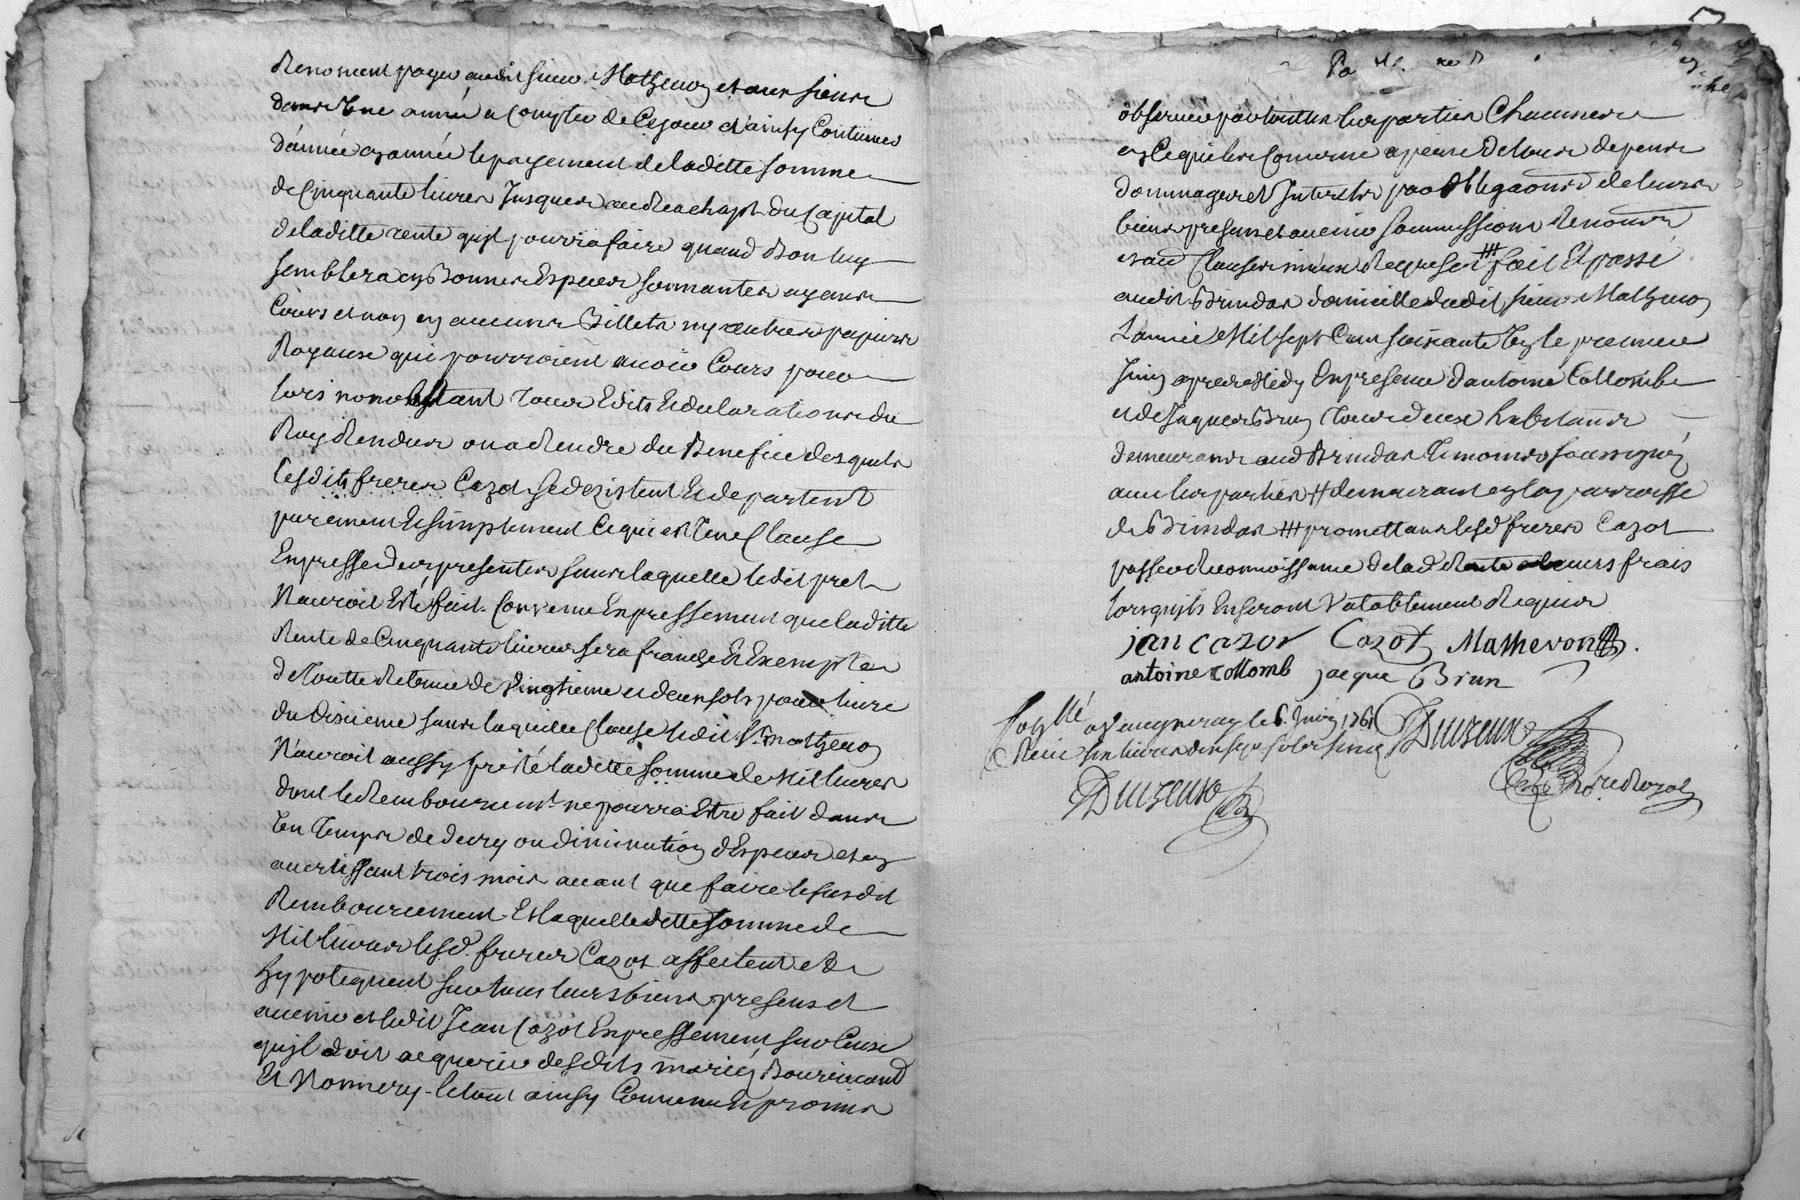 payer audit sieur Mathevon et aux siens
dans une année a compter de ce jour et ainsy continuer
d'année en année le payement de ladette somme
de cinquante livres jusques au rachapt du capital
de laditte rente qu'jl pourra faire quand bon luy
semblera en bonnes Especes sonnantes ayant
Cours et non en aucuns Billets ny autres papiers
Royaux qui pourroient avoir Cours pour
lors nonobstant tous Edits et declarations du
Roy Rendus ou a Rendre du Benefice desquels
lesdits freres Cazot se dezistent et departent
purement et simplement ce qui est une Clause
Expresse des presentes sans laquelle ledit pret
n'auroit Esté fait. Convenu Expressement que laditte
Rente de Cinquante livres sera franche et Exempte
de toutte Retenue de vingtieme et deux sols pour livre
du dixieme sans laquelle Clause ledit Sr. Mathevon
N'auroit aussy preté ladette somme de Mil livres
dont le Rembourcement ne pourra Estre fait dans
un temps de decry ou diminution d'Especes et en
avertissant trois mois avant que faire le susdit
Rembourcement Et laquelle dette somme de
Mil livres lesd. freres Cazot affectent et
hypotequent sur tous leurs biens presens et
avenir et ledit Jean Cazot Expressement sur Ceux
qu'jl doit acquerir desdits mariés
Et Nonnery. le tout ainsy Convenu Et promis
observer par touttes les parties Chacunes
en ce qui les Concerne a peine de tous depens
dommages et Interets par obligaons de leurs
biens presens et avenir soumissions Renonons
et au Clauses requises ## fait Et passé
audit Brindas domicille dudit sieur Mathevon
L'année Mil sept Cent soixante le premier
Juin apres Midy En presence d'antoine Collomb
et de Jaques Brun tous deux habitants
demeurants aud Brindas temoins soussignés
avec les parties # demeurant en la parroisse
de Brindas ## promettant lesd freres Cazot
passer Reconnoissance de lad Rente a leurs frais
lorsqu'jls En seront valablement Requis
jan cazot Cazot Mathevon
antoine collomb jacque Brun
Conllé a Vaugneray le 6 Juin 1761
Reçu livres dix sept sols